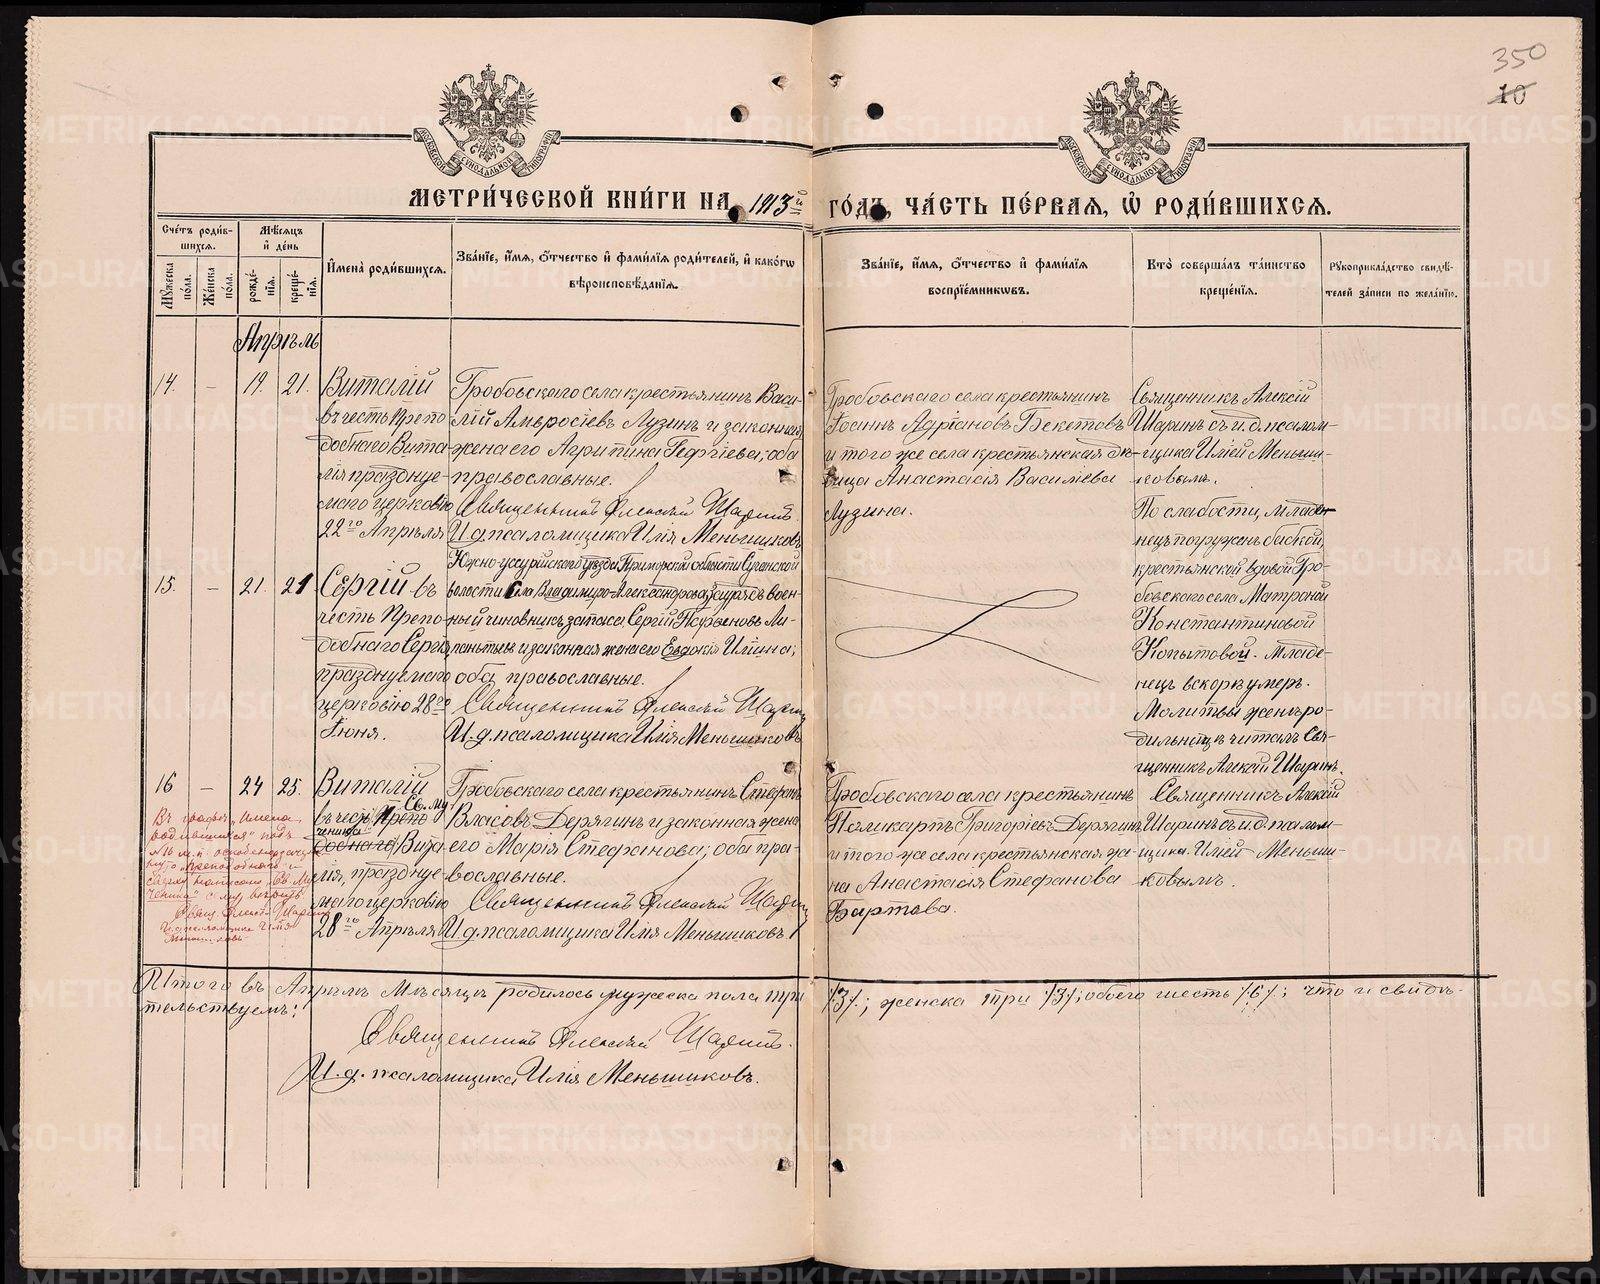 350
10
МОСКОВСКОЙ СѴНОДАЛЬНОЙ ТИПОГРАФІИ
МОСКОВСКОЙ СѴНОДАЛЬНОЙ ТИПОГРАФІИ
МЕТРИ́ЧЕСКОЙ КНИ́ГИ НА 1913й ГО́ДЪ, ЧА́СТЬ ПЕ́РВАЯ, Ѡ РОДИ́ВШИХСЯ.
Сче́тъ роди́вшихся.
Мꙋ́жеска по́ла.
Же́нска по́ла.
Мѣ́сяцъ и҆ де́нь
рожде́нїя.
креще́нїя.
И҆мена̀ роди́вшихся.
Зва́нїе, и҆́мя, ѻ҆́тчество и҆ фами́лїя роди́телей, и҆ како́гѡ вѣроисповѣ́данїя.
Зва́нїе, и҆́мя, ѻ҆́тчество и҆ фами́лїя воспрїе́мникѡвъ.
Кто̀ соверша́лъ та́инство креще́нїя.
Рꙋкоприкла́дство свидѣ́телей за́писи по жела́нїю.
Апрѣль
14. - 19. 21.
Виталій
въ честь Препо-
добнаго Вита-
лія празднуе-
маго церковію
22го Апрѣля
Гробовскаго села крестьянинъ Васи-
лій Амвросіевъ Лузинъ и законная
жена его Агрипина Георгіева; оба
православные.
Священникъ Алексѣй Шаринъ
И. д. псаломщика Илія Меньшиковъ
Гробовскаго села крестьянинъ
Іосинъ Адріановъ Бекетовъ
и того же села крестьянская дѣ-
вица Анастасія Василіева
Лузина.
Священникъ Алексій
Шаринъ съ и. д. псалом-
щика Иліей Меньши-
ковымъ.
15. - 21. 21
Сергій въ
честь Препо-
добнаго Сергія,
празднуемаго
церковію 28го
Іюня.
Южно-уссурійскаго уѣзда Приморской области Сучанской
волости села Владимиро-Александровск. Заурядъ воен-
ный чиновникъ запаса Сергій Парѳеновъ Ли-
паньтьевъ и законная жена его Евдокія Иліина;
оба православные.
Священникъ Алексѣй Шаринъ
И. д. псаломщика Илія Меньшиковъ
По слабости, младе-
нецъ погруженъ бабкой,
крестьянской вдовой Гро-
бовскаго села Матроной
Константиновой
Копытовой. Младе-
нецъ вскорѣ умеръ.
Молитвы женѣ ро-
дильницѣ читалъ Свя-
щенникъ Алексій Шаринъ.
16 - 24 25.
Виталій
Св. Му-
въ честь Препо-
ченика
добнаго Вита-
лія, празднуе-
маго церковію
28го Апрѣля
Гробовскаго села крестьянинъ Стефанъ
Власовъ Дерягинъ и законная жена
его Марія Стефанова; оба пра-
вославные.
Священникъ Алексѣй Шаринъ
И. д. псаломщика Илія Меньшиковъ
Гробовскаго села крестьянинъ
Поликарпъ Григоріевъ Дерягинъ
и того же села крестьянская же-
на Анастасія Стефанова
Бартова.
Священникъ Алексій
Шаринъ съ и. д. псалом-
щика Иліей Меньши-
ковымъ.
Въ графѣ „имена
родившихся" подъ
№ 16 м. п.
„Преподобнаго"
сверху написано „Св. Му-
ченика"
Свящ. Алексѣй Шаринъ
И. д. псаломщика Илія
Меньшиковъ
Итого въ Апрѣлѣ Мѣсяцѣ родилось мужеска пола три /3/; женска три /3/; обоего шесть /6/; что и свидѣ-
тельствуемъ:
Священникъ Алексѣй Шаринъ.
И. д. псаломщика Илія Меньшиковъ.
METRIKI.GASO-URAL.RU